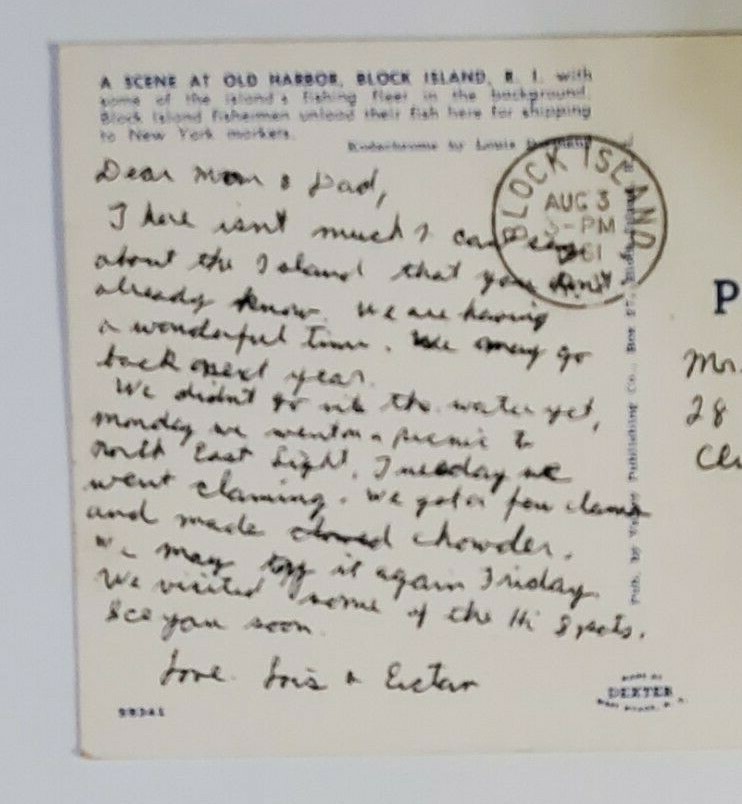 A SCENE AT OLD HARBOR, BLOCK ISLAND, R. I. with
some of the island's fishing fleet in the background.
Block Island fishermen unload their fish here for shipping
to New York markets.
Kodachrome by Louis
Dear Mom & Dad,
There isn't much I can say
about the Island that you don't
already know. We are having
a wonderful time. We may go
back next year.
We didn't go in the water yet,
Monday we went on a picnic to
North East Light. Tuesday we
went claming. We got a few clams
and made chowder.
We may try it again Friday.
We visited some of the Hi Spots.
See you soon.
Love. Lois &
BLOCK ISLAND
AUG 3
PM
1961
Pub. by Publishing Co., Box
P
28
MADE BY
DEXTER